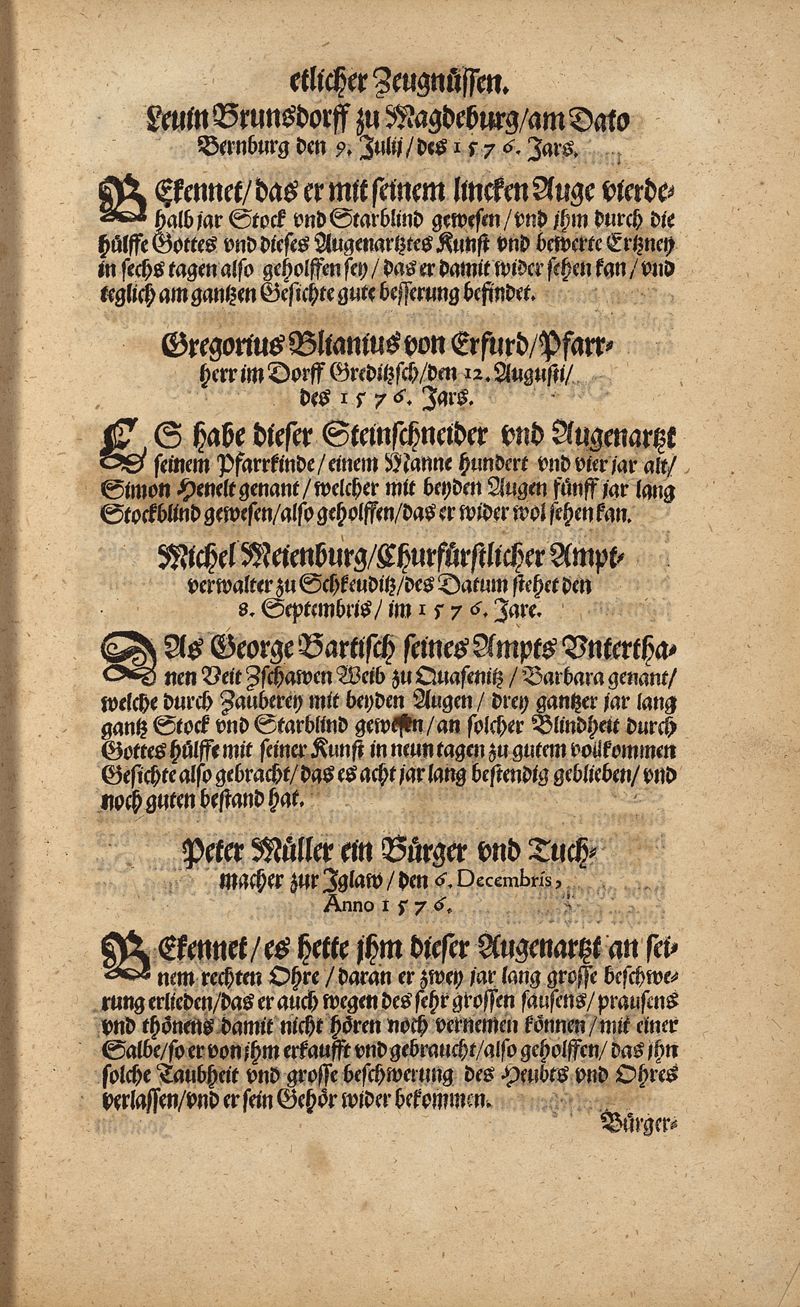 etlicher Zeugnüssen.
Levin Brunsdorff zu Magdeburg/am Dato
Bernburg den 9. Julij/des 1576. Jars.
BEkennet/das er mit seinem lincken Auge vierde-
halb jar Stock vnd Starblind gewesen/vnd jhm durch die
hülffe Gottes vnd dieses Augenartztes Kunst vnd bewerte Ertzney
in sechs tagen also geholffen sey/das er damit wider sehen kan/vnd
teglich am gantzen Gesichte gute besserung befindet.
Gregorius Blianius von Erfurd/Pfarr-
herr im Dorff Greditzsch/den 12. Augusti/
des 1576. Jars.
ES habe dieser Steinschneider vnd Augenartzt
seinem Pfarrkinde/einem Manne hundert vnd vier jar alt/
Simon Henelt genant/welcher mit beyden Augen fünff jar lang
Stockblind gewesen/also geholffen/das er wider wol sehen kan.
Michel Meienburg/Churfürstlicher Ampt-
verwalter zu Schkeuditz/des Datum stehet den
8. Septembris/im 1576. Jare.
DAs George Bartisch seines Ampts Vntertha-
nen Veit Zschawen Weib zu Quasenitz/Barbara genant/
welche durch Zauberey mit beyden Augen/drey gantzer jar lang
gantz Stock vnd Starblind gewesen/an solcher Blindheit durch
Gottes hülffe mit seiner Kunst in neun tagen zu gutem vollkommen
Gesichte also gebracht/das es acht jar lang bestendig geblieben/vnd
noch guten bestand hat.
Peter Müller ein Bürger vnd Tuch-
macher zur Jglaw/den 6. Decembris,
Anno 1576.
BEkennet/es hette jhm dieser Augenartzt an sei-
nem rechten Ohre/daran er zwey jar lang grosse beschwe-
rung erlieden/das er auch wegen des sehr grossen sausens/prausens
vnd thönens damit nicht hören noch vernemen können/mit einer
Salbe/so er von jhm erkaufft vnd gebraucht/also geholffen/das jhn
solche Taubheit vnd grosse beschwerung des Heubts vnd Ohres
verlassen/vnd er sein Gehör wider bekommen.
Bürger-